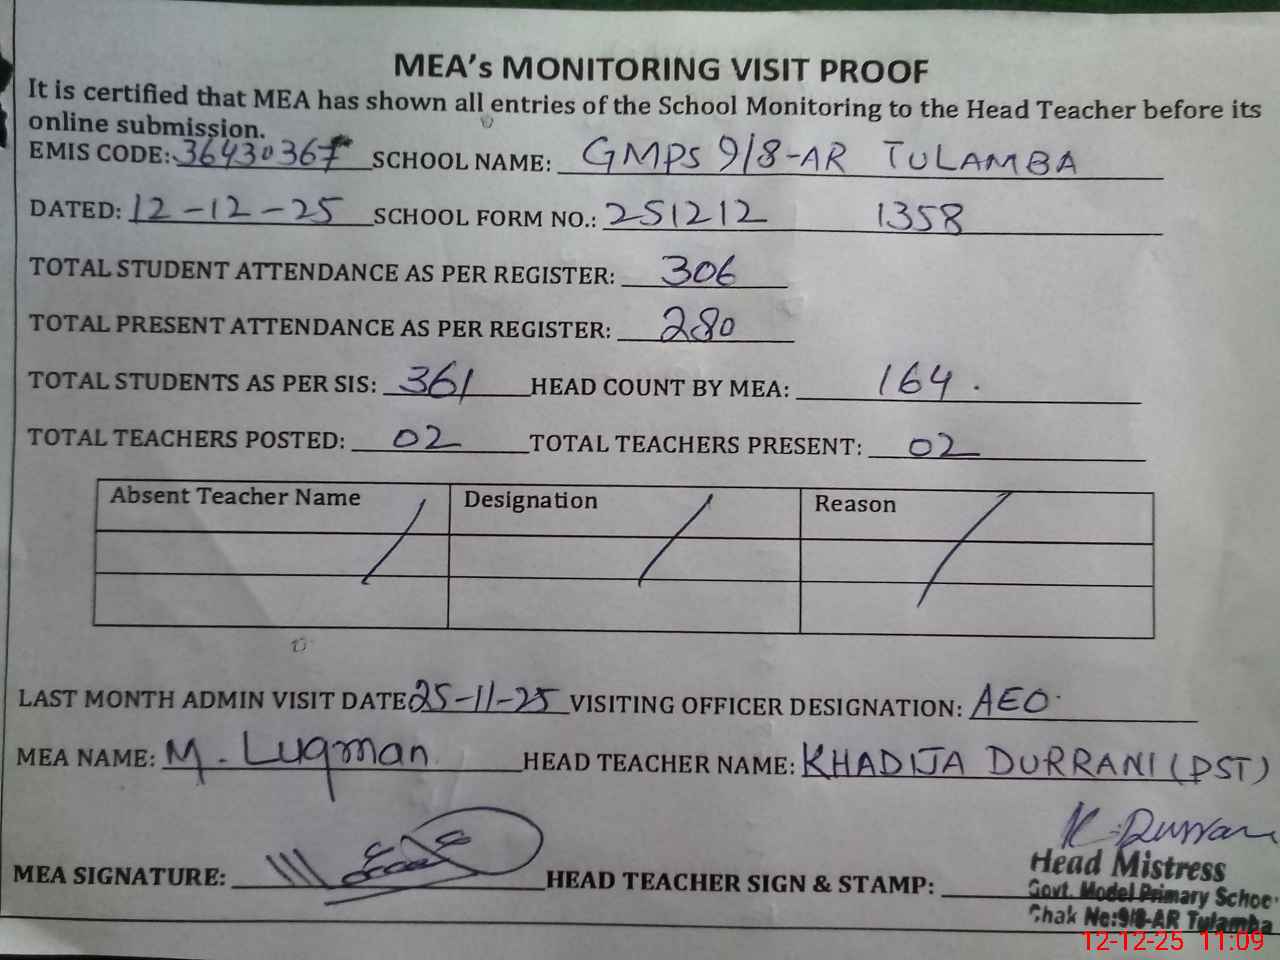 MEA's MONITORING VISIT PROOF
It is certified that MEA has shown all entries of the School Monitoring to the Head Teacher before its
online submission.
EMIS CODE: 36430367 SCHOOL NAME: GMPS 9/8-AR TULAMBA
DATED: 12-12-25 SCHOOL FORM NO.: 251212 1358
TOTAL STUDENT ATTENDANCE AS PER REGISTER: 306
TOTAL PRESENT ATTENDANCE AS PER REGISTER: 280
TOTAL STUDENTS AS PER SIS: 361 HEAD COUNT BY MEA: 164.
TOTAL TEACHERS POSTED: 02 TOTAL TEACHERS PRESENT: 02
Absent Teacher Name Designation Reason
LAST MONTH ADMIN VISIT DATE 25-11-25 VISITING OFFICER DESIGNATION: AEO
MEA NAME: M. Luqman HEAD TEACHER NAME: KHADIJA DURRANI (PST)
K. Durrani
MEA SIGNATURE: HEAD TEACHER SIGN & STAMP:
Head Mistress
Govt. Model Primary Schoo
Chak No:9/8-AR Tulamba
12-12-25 11:09